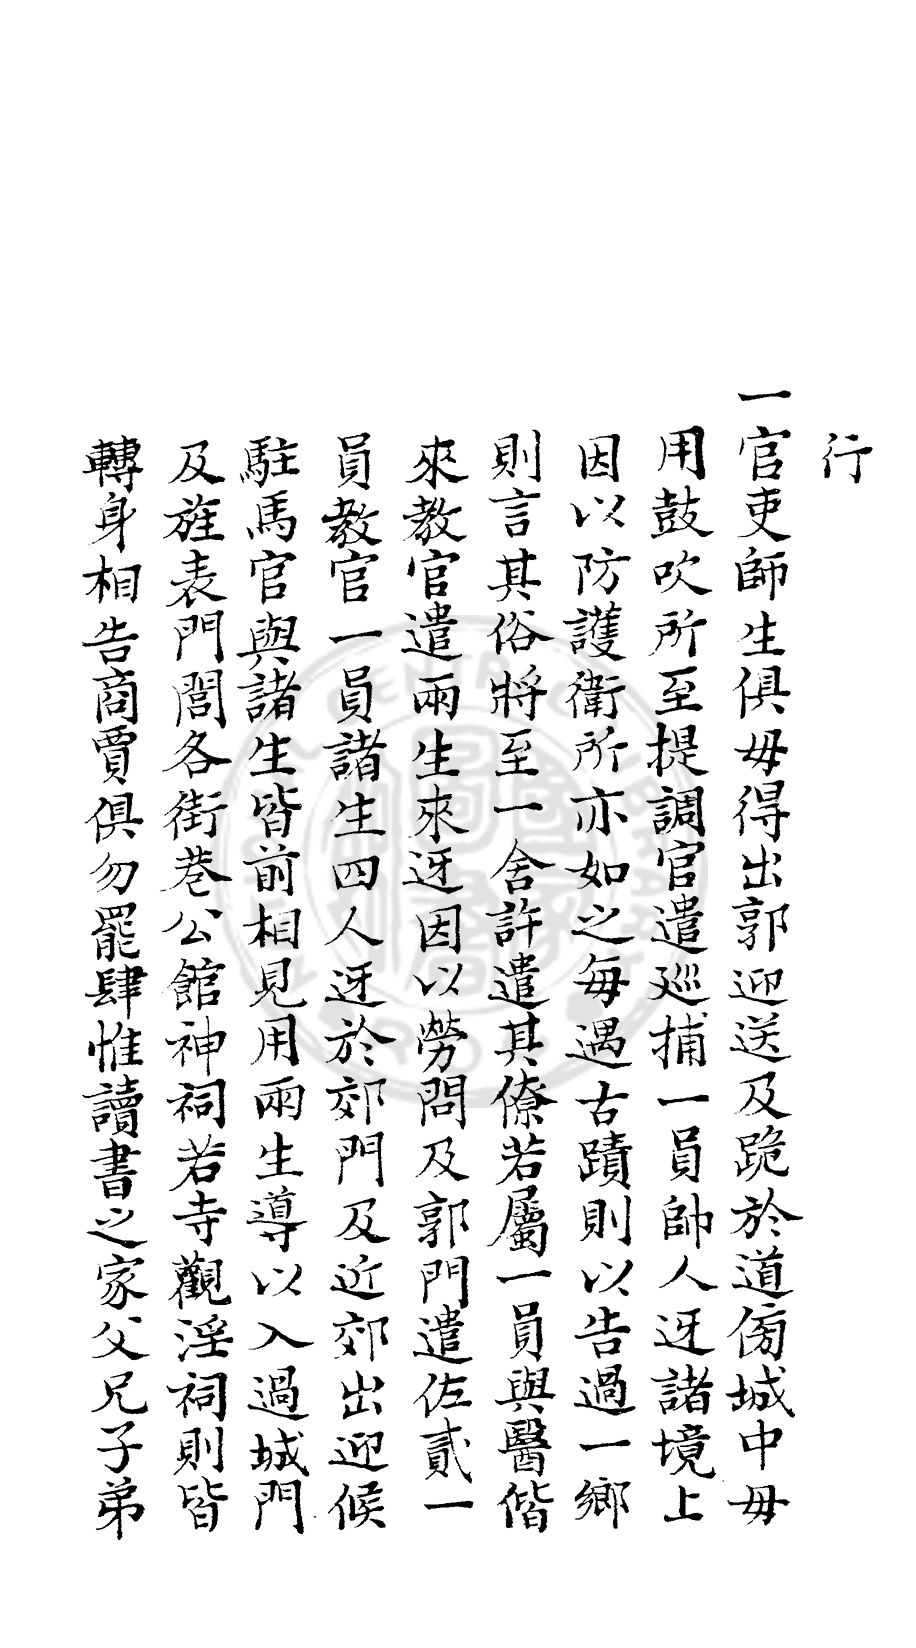 行
一官吏師生俱毋得出郭迎送及跪於道傍城中毋
用鼓吹所至提調官遣廵捕一員帥人迓諸境上
因以防護衛所亦如之每遇古蹟則以告過一鄉
則言其俗將至一舍許遣其僚若屬一員與醫偕
來教官遣兩生來迓因以勞問及郭門遣佐貳一
員教官一員諸生四人迓於郊門及近郊出迎候
駐馬官與諸生皆前相見用兩生導以入過城門
及旌表門閭各街巷公館神祠若寺觀淫祠則皆
轉身相告商賈俱勿罷肆惟讀書之家父兄子弟